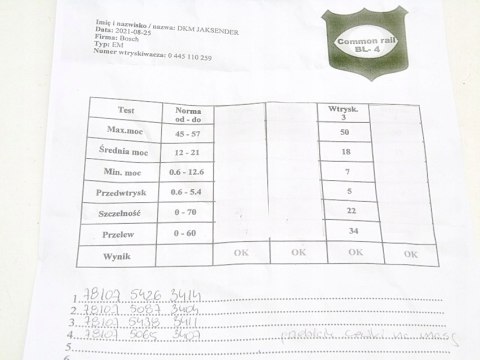 Imię i nazwisko / nazwa: DKM JAKSENDER
Data: 2021-08-25
Firma: Bosch
Typ: EM
Numer wtryskiwacza: 0 445 110 259
Common rail
BL- 4
Test Norma od - do Wtrysk. 3
Max.moc 45 - 57 50
Średnia moc 12 - 21 18
Min. moc 0.6 - 12.6 7
Przedwtrysk 0.6 - 5.4 5
Szczelność 0 - 70 22
Przelew 0 - 60 34
Wynik OK OK OK OK
1 78107 5426 3414
2 78107 5087 3404
3 78107 5438 3411
4 78107 5065 3407
5
6